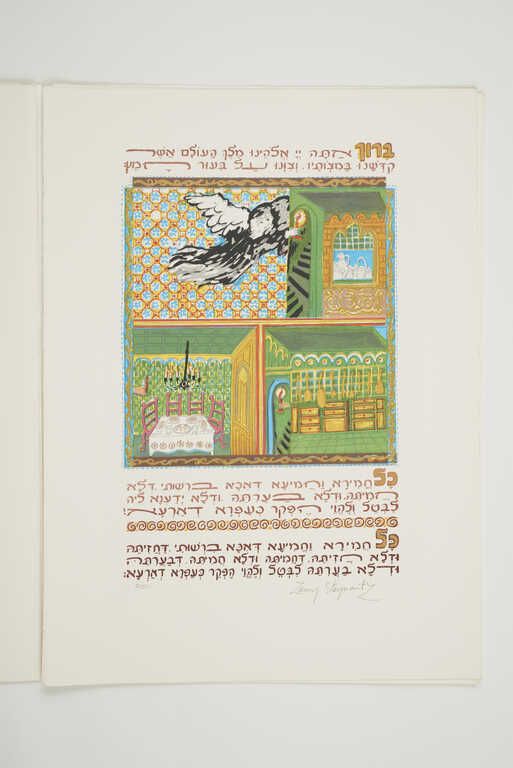 ברוך אתה יי אלהינו מלך העולם אשר
קדשנו במצותיו וצונו על בעור חמץ
כל חמירא וחמיעא דאכא ברשותי דלא
חמיתה ודלא בערתה ודלא ידענא ליה
לבטל ולהוי הפקר כעפרא דארעא:
כל חמירא וחמיעא דאכא ברשותי דחזיתה
ודלא חזיתה דחמיתה ודלא חמיתה דבערתה
ודלא בערתה לבטל ולהוי הפקר כעפרא דארעא: